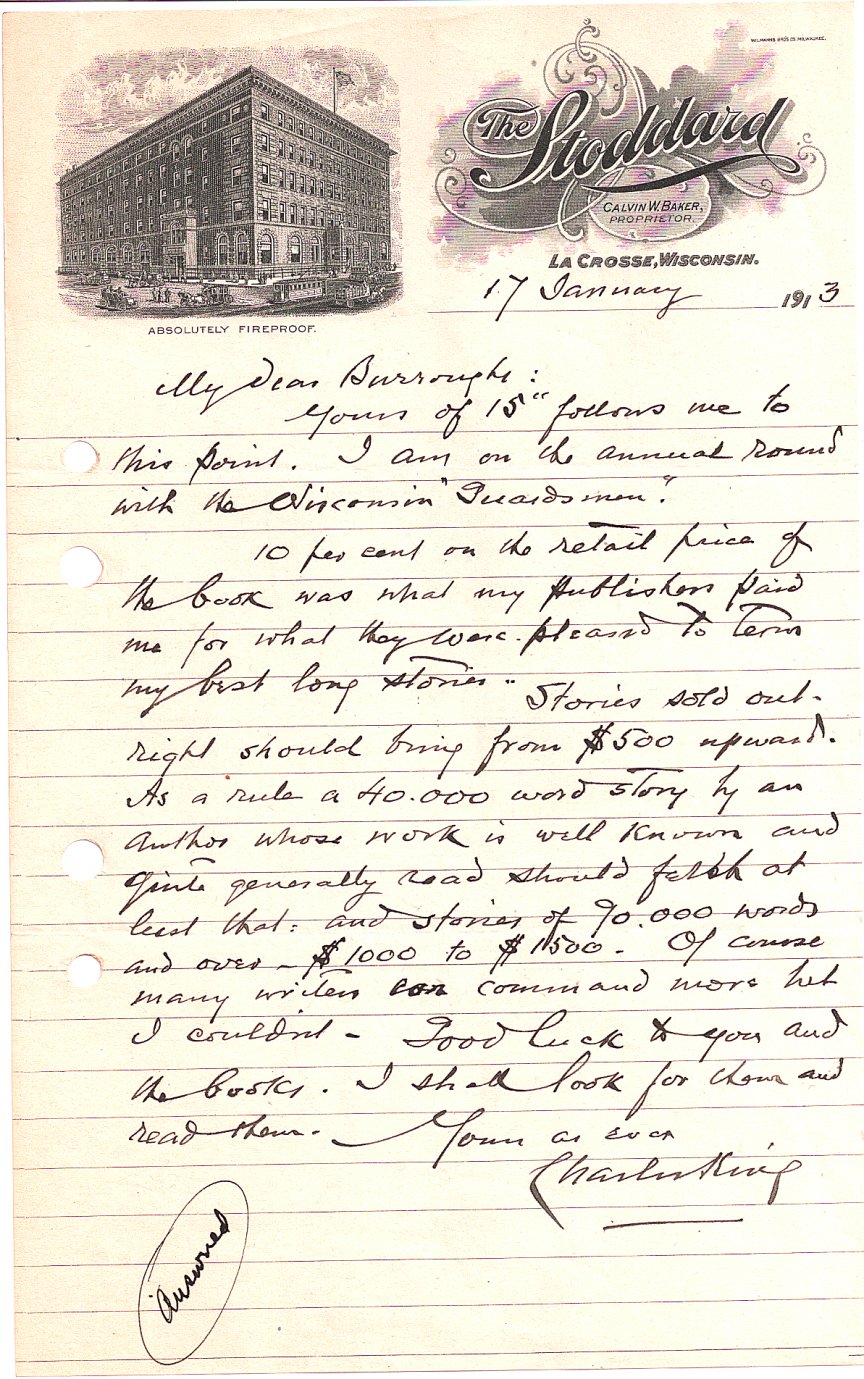 WILMANNS BROS CO. MILWAUKEE.
The Stoddard
CALVIN W. BAKER,
PROPRIETOR.
LA CROSSE, WISCONSIN.
ABSOLUTELY FIREPROOF.
17 January 1913
My dear Burroughs:
Yours of 15" follows me to
this point. I am on the annual round
with the Wisconsin "Guardsmen".
10 per cent on the retail price of
the book was what my publishers paid
me for what they were pleased to term
my best long stories.. Stories sold out-
right should bring from $500 upward.
As a rule a 40.000 word story by an
author whose work is well known and
quite generally read should fetch at
least that: and stories of 90.000 words
and over – $1000 to $1500 - Of course
many writers can command more but
I couldn't – Good luck to you and
the books. I shall look for them and
read them. – Yours as ever
Charles King
Answered